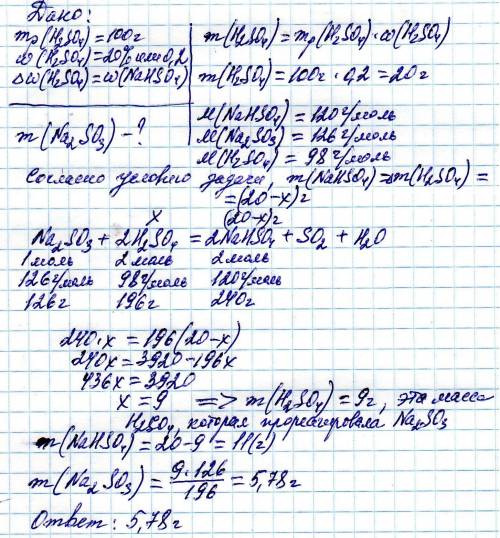 Дано:
mр(H₂SO₄)=100г
ω(H₂SO₄)=20% или 0,2
Δω(H₂SO₄)=ω(NaHSO₄)
m(Na₂SO₃) – ?
m(H₂SO₄)=mр(H₂SO₄)·ω(H₂SO₄)
m(H₂SO₄)=100г·0,2=20г
M(NaHSO₄) = 120 г/моль
M(Na₂SO₃) = 126 г/моль
M(H₂SO₄) = 98 г/моль
Согласно условию задачи, m(NaHSO₄)=Δm(H₂SO₄)=
=(20-x)г
x (20-x)г
Na₂SO₃ + 2H₂SO₄ = 2NaHSO₄ + SO₂ + H₂O
1 моль 2 моль 2 моль
126 г/моль 98 г/моль 120 г/моль
126г 196г 240г
240·x = 196(20-x)
240x = 3920-196x
436x = 3920
x = 9 => m(H₂SO₄) = 9г, эта масса
H₂SO₄, которая прореагировала Na₂SO₃
m(NaHSO₄) = 20-9 = 11(г)
m(Na₂SO₃) = 9·126/196 = 5,78г
Ответ: 5,78г